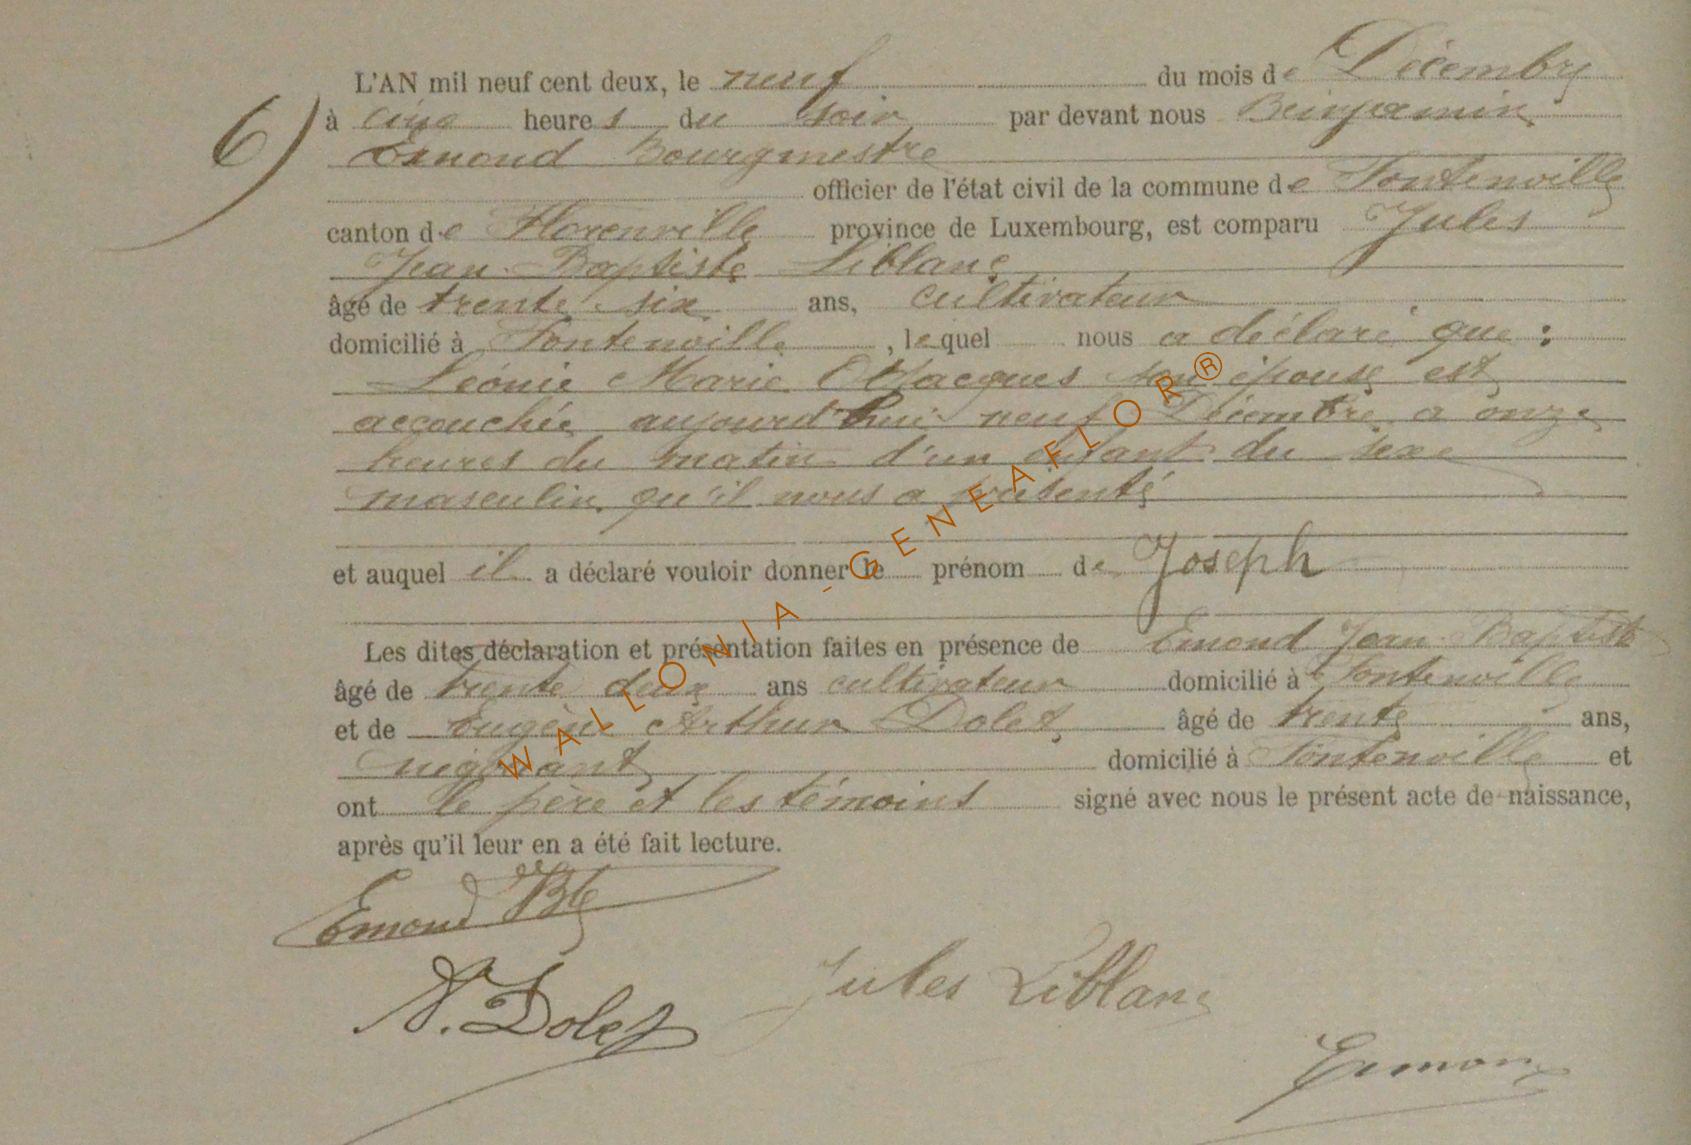 L'AN mil neuf cent deux, le neuf du mois de Décembre
6) à cinq heures du soir par devant nous Benjamin
Emond Bourgmestre
officier de l'état civil de la commune de Fontenoille
canton de Florenville province de Luxembourg, est comparu Jules
Jean Baptiste Liblanc
âgé de trente six ans, cultivateur
domicilié à Fontenoille, lequel nous a déclaré que :
Léonie Marie Otjacques son épouse est
accouchée aujourd'hui neuf Décembre a onze
heures du matin d'un enfant du sexe
masculin qu'il nous a présenté
et auquel il a déclaré vouloir donner le prénom de Joseph
Les dites déclaration et présentation faites en présence de Emond Jean Baptiste
âgé de trente deux ans cultivateur domicilié à Fontenoille
et de Eugène Arthur Dolet âgé de trente ans,
négociant domicilié à Fontenoille et
ont le père et les témoins signé avec nous le présent acte de naissance,
après qu'il leur en a été fait lecture.
Emond JBte
A. Dolet
Jules Liblanc
Emond
WALLONIA-GENEAFLOR®